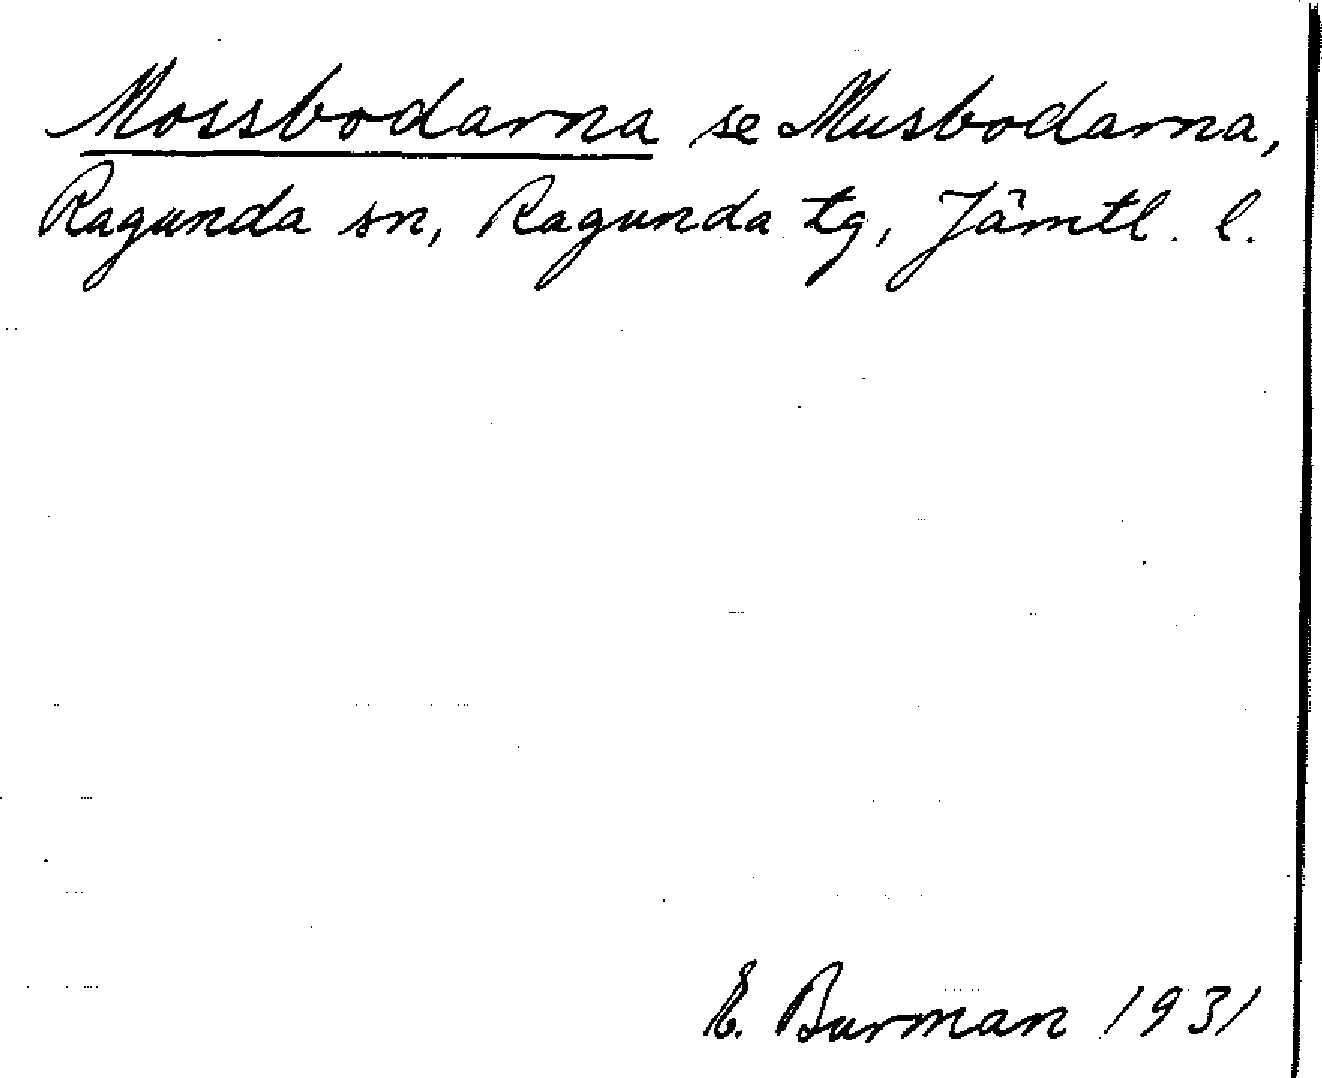 Mossbodarna se Musbodarna,
Ragunda sn, Ragunda tg, Jämtl. l.
E. Burman 1931